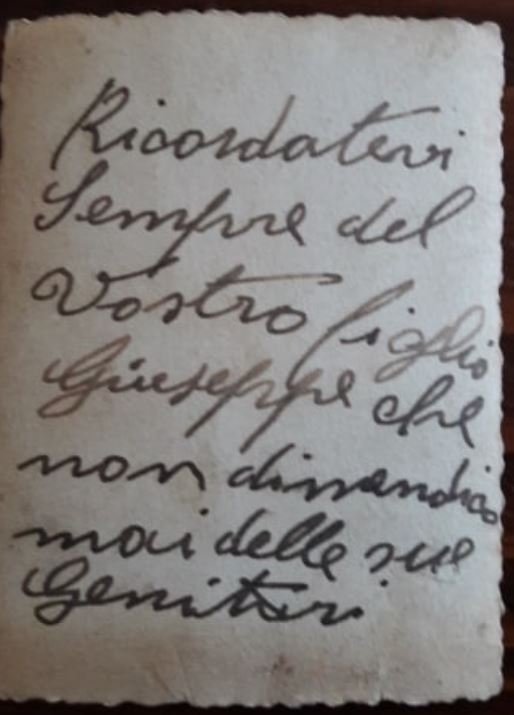 Ricordatevi
Sempre del
Vostro figlio
Giuseppe che
non dimendica
mai delle sue
Genitori